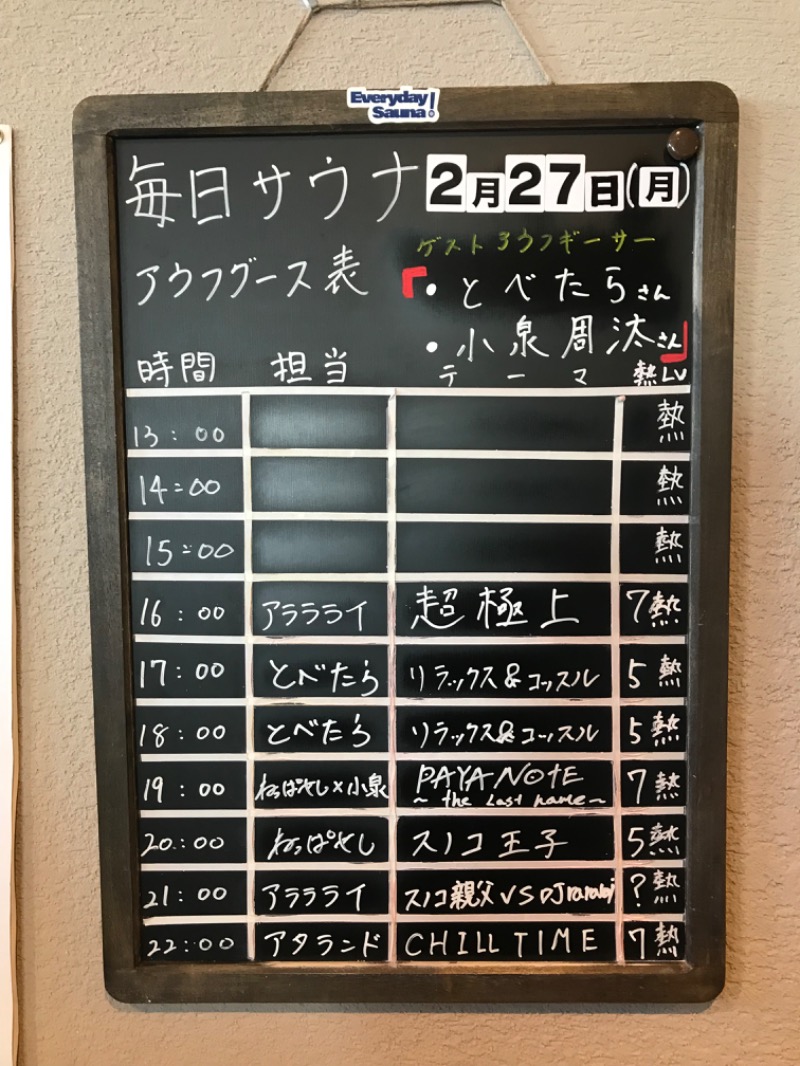 Everyday Sauna!
毎日サウナ 2月27日(月)
アウフグース表
ゲストアウフギーサー
「・とべたらさん
・小泉周汰さん」
時間 担当 テーマ 熱LV
13:00 熱
14:00 熱
15:00 熱
16:00 アララライ 超極上 7熱
17:00 とべたら リラックス&コッスル 5熱
18:00 とべたら リラックス&コッスル 5熱
19:00 ねっぱやし×小泉 PAYA NOTE
~the last name~ 7熱
20:00 ねっぱやし スノコ王子 5熱
21:00 アララライ スノコ親父VS DJ ?熱
22:00 アタランド CHILL TIME 7熱